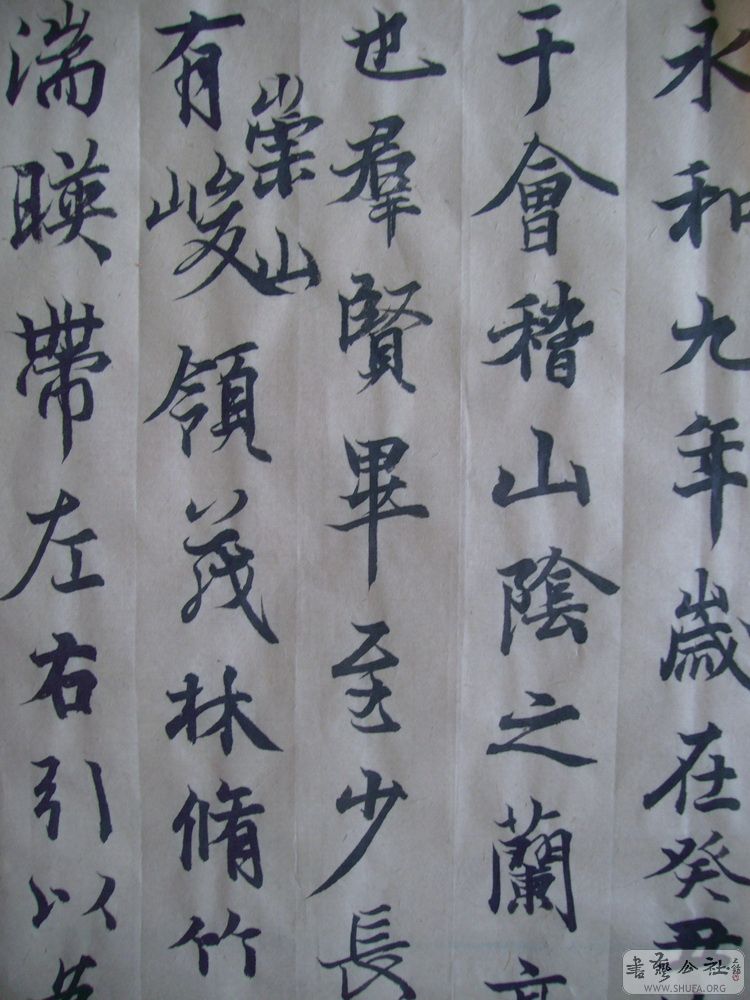 永和九年歲在癸丑
于會稽山陰之蘭亭
也羣賢畢至少長
有崇山峻領茂林脩竹
湍暎帶左右引以為
書藝公社
WWW.SHUFA.ORG